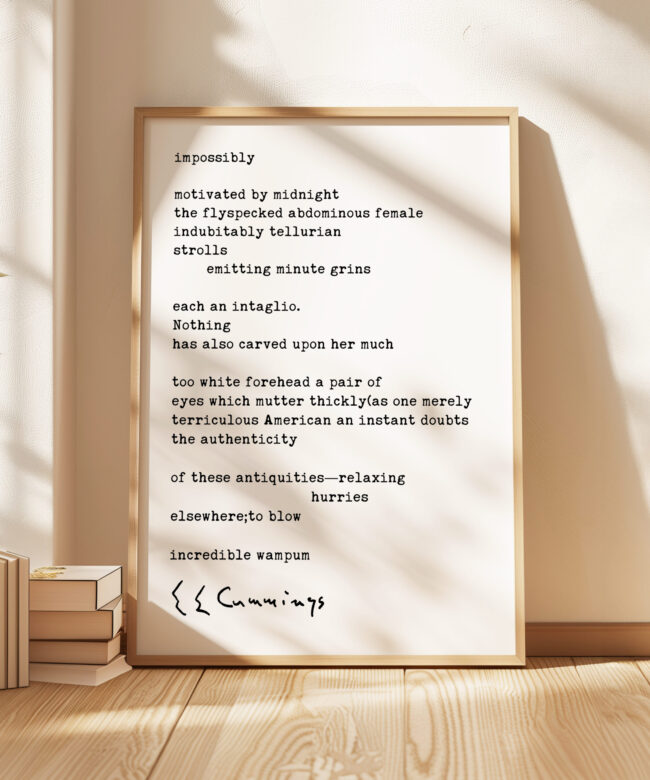 impossibly
motivated by midnight
the flyspecked abdominous female
indubitably tellurian
strolls
emitting minute grins
each an intaglio.
Nothing
has also carved upon her much
too white forehead a pair of
eyes which mutter thickly(as one merely
terriculous American an instant doubts
the authenticity
of these antiquities—relaxing
hurries
elsewhere;to blow
incredible wampum
E E Cummings